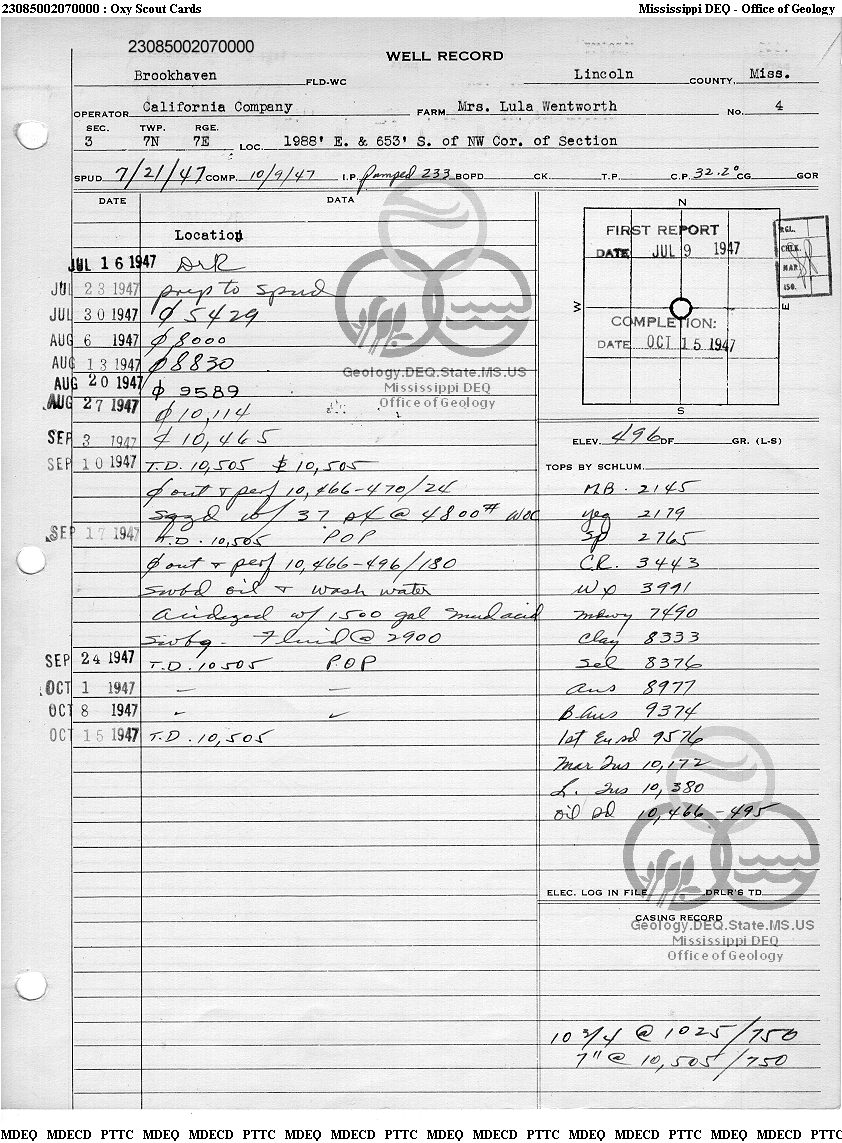 23085002070000 : Oxy Scout Cards Mississippi DEQ - Office of Geology
23085002070000
WELL RECORD
Brookhaven FLD-WC Lincoln COUNTY, Miss.
OPERATOR California Company FARM Mrs. Lula Wentworth No. 4
SEC. TWP. RGE.
3 7N 7E LOC. 1988' E. & 653' S. of NW Cor. of Section
SPUD 7/21/47 COMP. 10/9/47 I.P. Pumped 233 BOPD CK. T.P. C.P. 32.2° CG GOR
DATE DATA
Location
JUL 16 1947 Drlg
JUL 23 1947 prep to spud
JUL 30 1947 ₵ 5429
AUG 6 1947 ₵ 8000
AUG 13 1947 ₵ 8830
AUG 20 1947 ₵ 9589
AUG 27 1947 ₵ 10,114
SEP 3 1947 ₵ 10,465
SEP 10 1947 T.D. 10,505 ₵ 10,505
₵ out & perf 10,466-470/24
Sqzd w/ 37 sx @ 4800# WOC
SEP 17 1947 T.D. 10,505 POP
₵ out & perf 10,466-496/180
Swbd oil & wash water
Acidized w/ 1500 gal mud acid
Swbg - Fluid @ 2900
SEP 24 1947 T.D. 10,505 P.O.P
OCT 1 1947 — —
OCT 8 1947
OCT 15 1947 T.D. 10,505
N
W
E
S
FIRST REPORT
DATE JUL 9 1947
COMPLETION:
DATE OCT 15 1947
RGL.
CHLK.
MAR.
ISO.
ELEV. 496 DF GR. (L-S)
TOPS BY SCHLUM.
M.B. 2145
Yeg 2179
Sp 2765
C.R. 3443
Wx 3991
Mdwy 7490
Clay 8333
Sel 8376
Aus 8977
B Aus 9374
1st Eu sd 9576
Mar Tus 10,172
L. Tus 10,380
oil sd 10,466-495
ELEC. LOG IN FILE DRLR'S TD
CASING RECORD
10 3/4 @ 1025/750
7" @ 10,505/750
Geology.DEQ.State.MS.US
Mississippi DEQ
Office of Geology
Geology.DEQ.State.MS.US
Mississippi DEQ
Office of Geology
MDEQ MDECD PTTC MDEQ MDECD PTTC MDEQ MDEQ MDECD PTTC MDEQ MDECD PTTC MDEQ MDECD PTTC